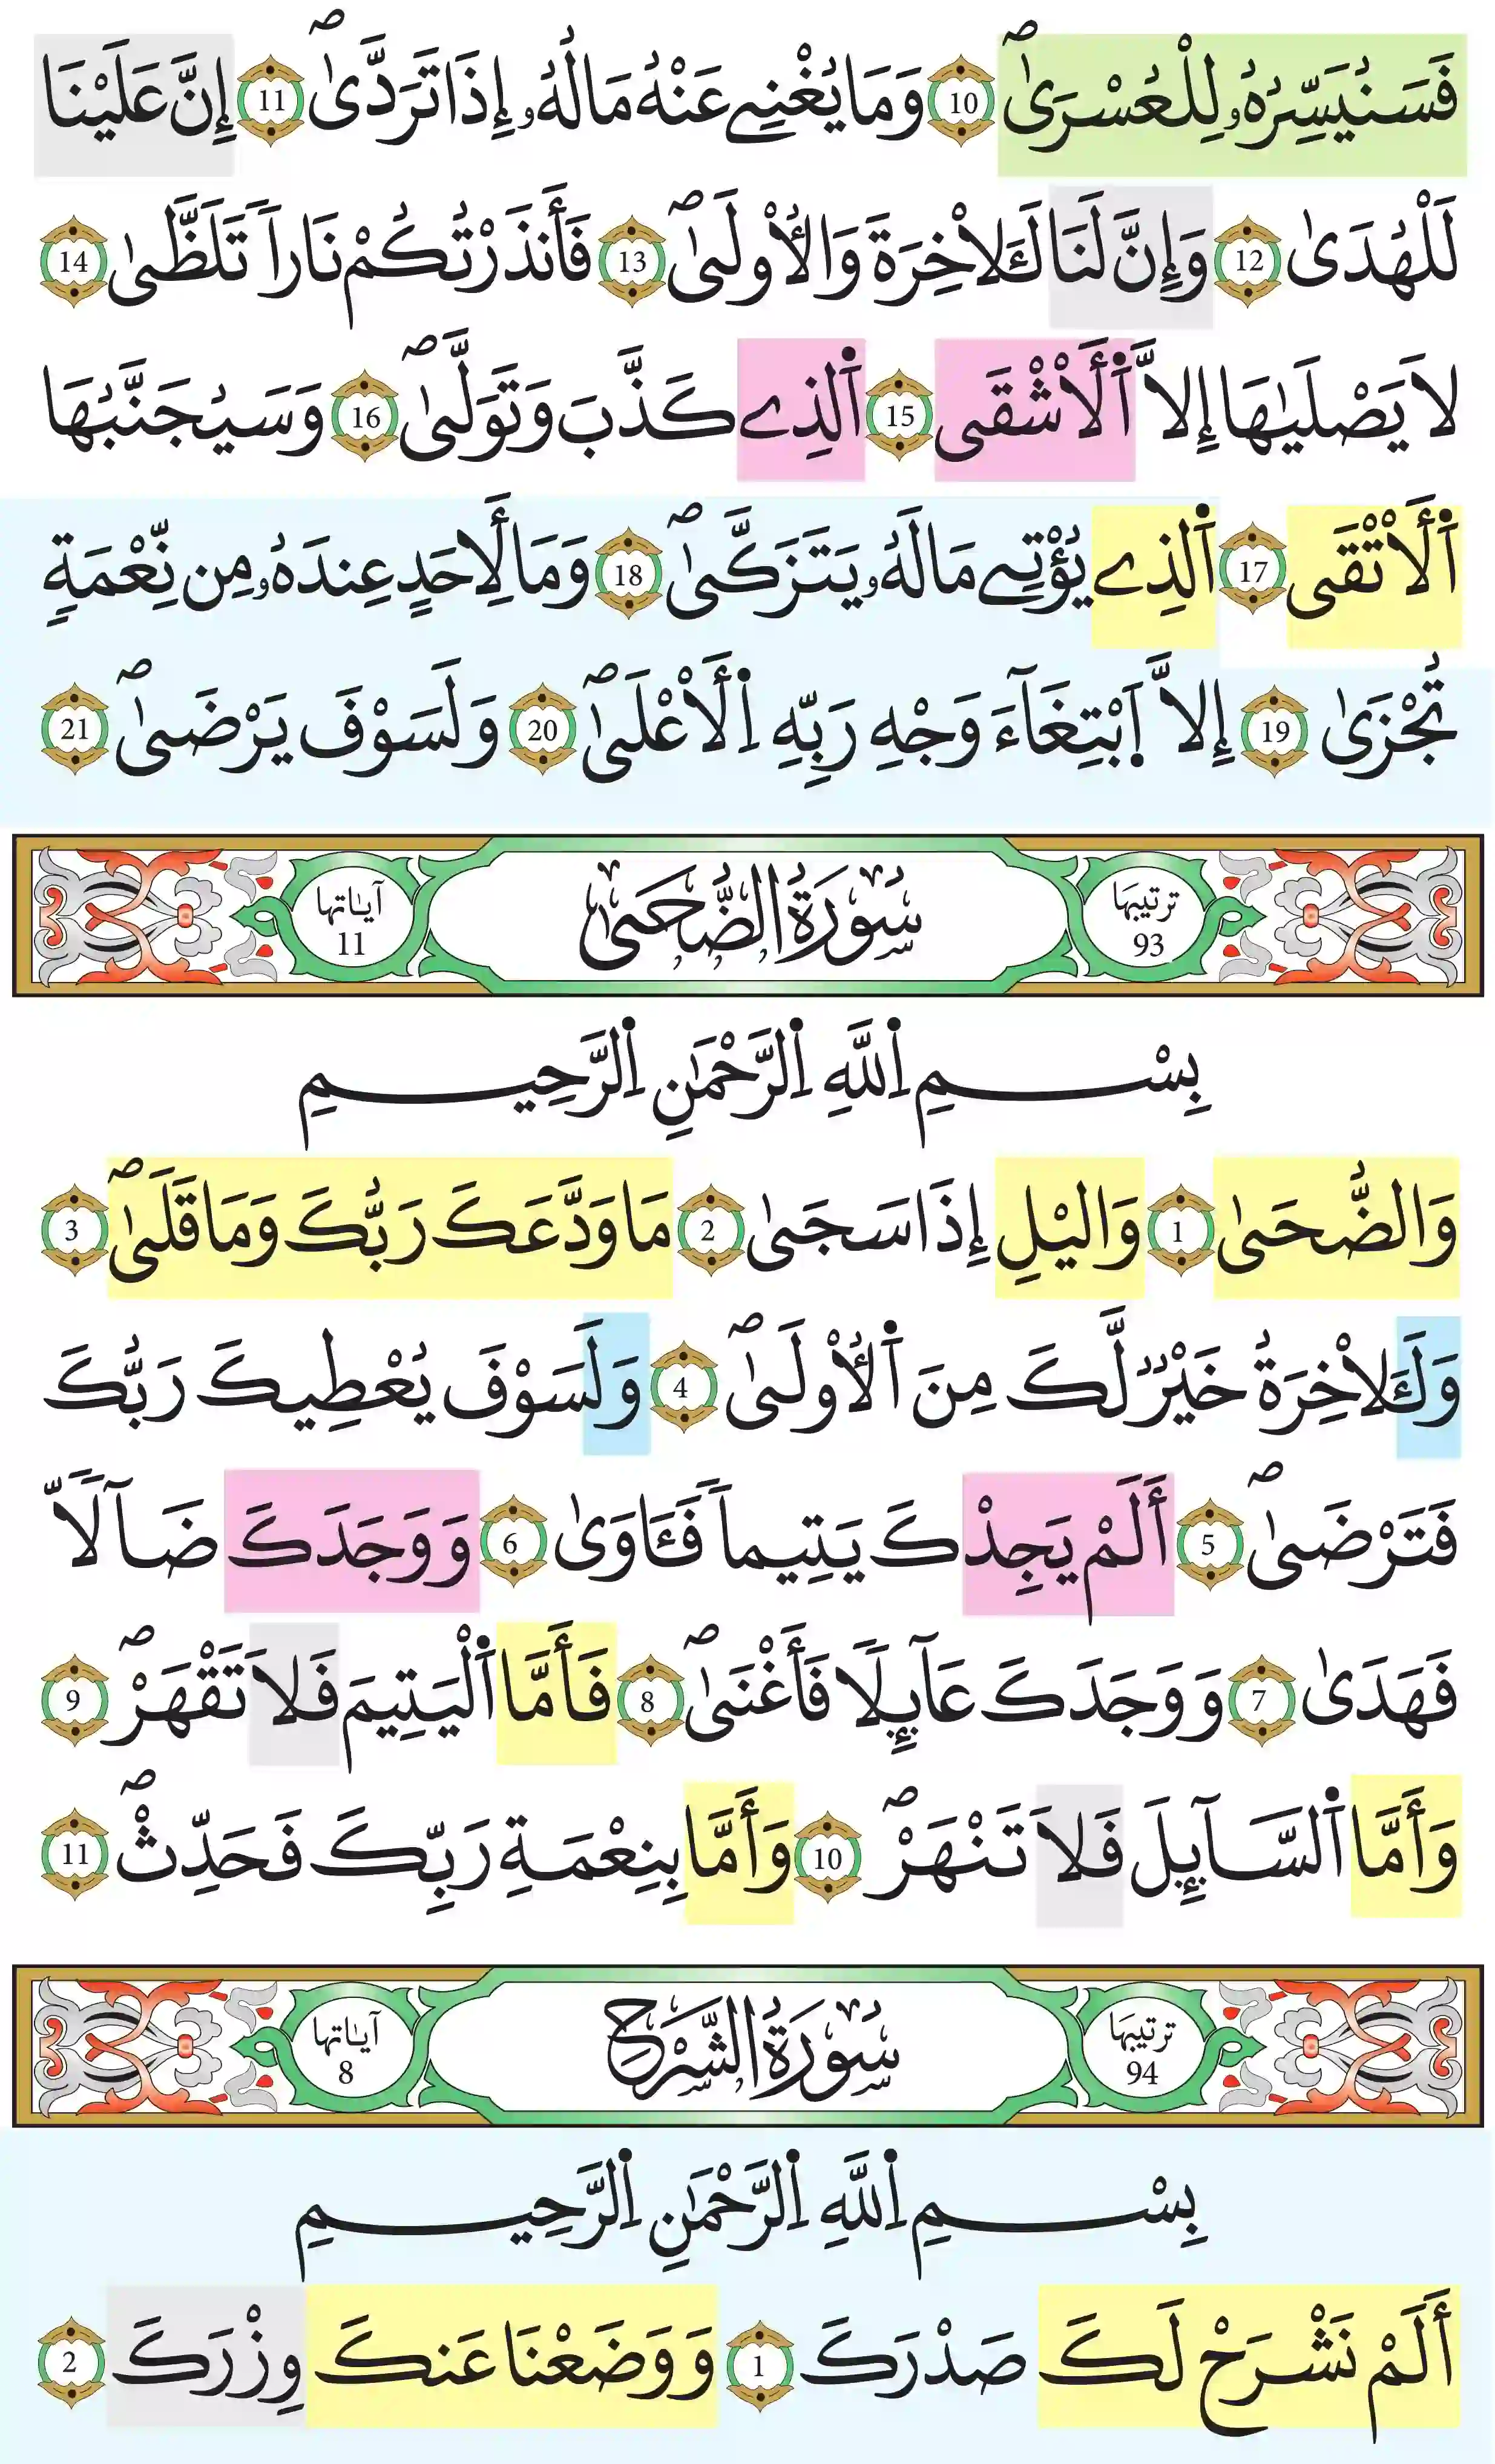 فَسَنُيَسِّرُهُۥ لِلْعُسْرَىٰۖ 10 وَمَا يُغْنِے عَنْهُ مَالُهُۥٓ إِذَا تَرَدَّىٰٓۖ 11 إِنَّ عَلَيْنَا
لَلْهُدَىٰ 12 وَإِنَّ لَنَا لَلَاخِرَةَ وَالُاولَىٰۖ 13 فَأَنذَرْتُكُمْ نَاراٗ تَلَظَّىٰ 14
لَا يَصْلَيٰهَآ إِلَّا اَ۬لَاشْقَى 15 اَ۬لذِے كَذَّبَ وَتَوَلَّىٰۖ 16 وَسَيُجَنَّبُهَا
اَ۬لَاتْقَى 17 اَ۬لذِے يُؤْتِے مَالَهُۥ يَتَزَكَّىٰۖ 18 وَمَا لِأَحَدٍ عِندَهُۥ مِن نِّعْمَةٖ
تُجْزَىٰٓ 19 إِلَّا اَ۪بْتِغَآءَ وَجْهِ رَبِّهِ اِ۬لَاعْلَىٰۖ 20 وَلَسَوْفَ يَرْضَىٰۖ 21
ترتيبها 93 سُورَةُ الضُّحَىٰ آياتها 11
بِسْمِ اِ۬للَّهِ اِ۬لرَّحْمَٰنِ اِ۬لرَّحِيمِ
وَالضُّحَىٰ 1 وَاليْلِ إِذَا سَجَىٰ 2 مَا وَدَّعَكَ رَبُّكَ وَمَا قَلَىٰۖ 3
وَلَلَاخِرَةُ خَيْرٞ لَّكَ مِنَ اَ۬لُاولَىٰۖ 4 وَلَسَوْفَ يُعْطِيكَ رَبُّكَ
فَتَرْضَىٰٓۖ 5 أَلَمْ يَجِدْكَ يَتِيماٗ فَـَٔاوَىٰ 6 وَوَجَدَكَ ضَآلّاٗ
فَهَدَىٰ 7 وَوَجَدَكَ عَآئِلاٗ فَأَغْنَىٰۖ 8 فَأَمَّا اَ۬لْيَتِيمَ فَلَا تَقْهَرْۖ 9
وَأَمَّا اَ۬لسَّآئِلَ فَلَا تَنْهَرْۖ 10 وَأَمَّا بِنِعْمَةِ رَبِّكَ فَحَدِّثْۖ 11
ترتيبها 94 سُورَةُ الشَّرْحِ آياتها 8
بِسْمِ اِ۬للَّهِ اِ۬لرَّحْمَٰنِ اِ۬لرَّحِيمِ
أَلَمْ نَشْرَحْ لَكَ صَدْرَكَ 1 وَوَضَعْنَا عَنكَ وِزْرَكَ 2